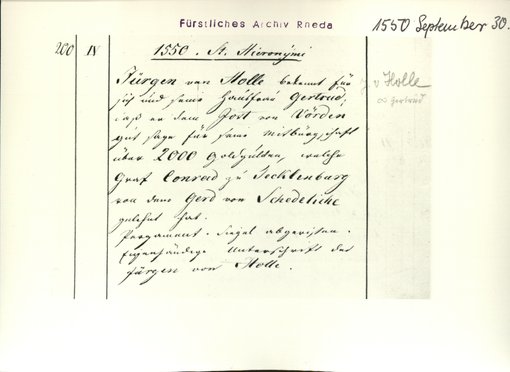 Fürstliches Archiv Rheda
1550 September 30.
200 IV 1550. St. Hieronymi
Jürgen von Holle bekennt für
sich und seine Hausfrau Gertrud,
daß er dem Jost von Vörden
gut sage für seine Mitbürgschaft
über 2000 Goldgulden, welche
Graf Conrad zu Tecklenburg
von dem Gerd von Schedeliche
gelehnt hat.
Pergament. Siegel abgerissen.
Eigenhändige Unterschrift des
Jürgen von Holle.
J. v Holle
∞ Gertrud